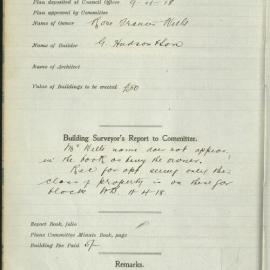 Plan deposited at Council Offices 9-4-18
Plan approved by Committee
Name of Owner Rose Frances Wells
Name of Builder G. Hudson & Son
Name of Architect
Value of Buildings to be erected £80
Building Surveyor's Report to Committee.
Mrs Wells name does not appear
in the book as being the owner.
Rec for app. being only
class of property in on the
block 11-4-18
Report Book, folio
Plans Committee Minute Book, page
Building Fee Paid 5/-
Remarks.